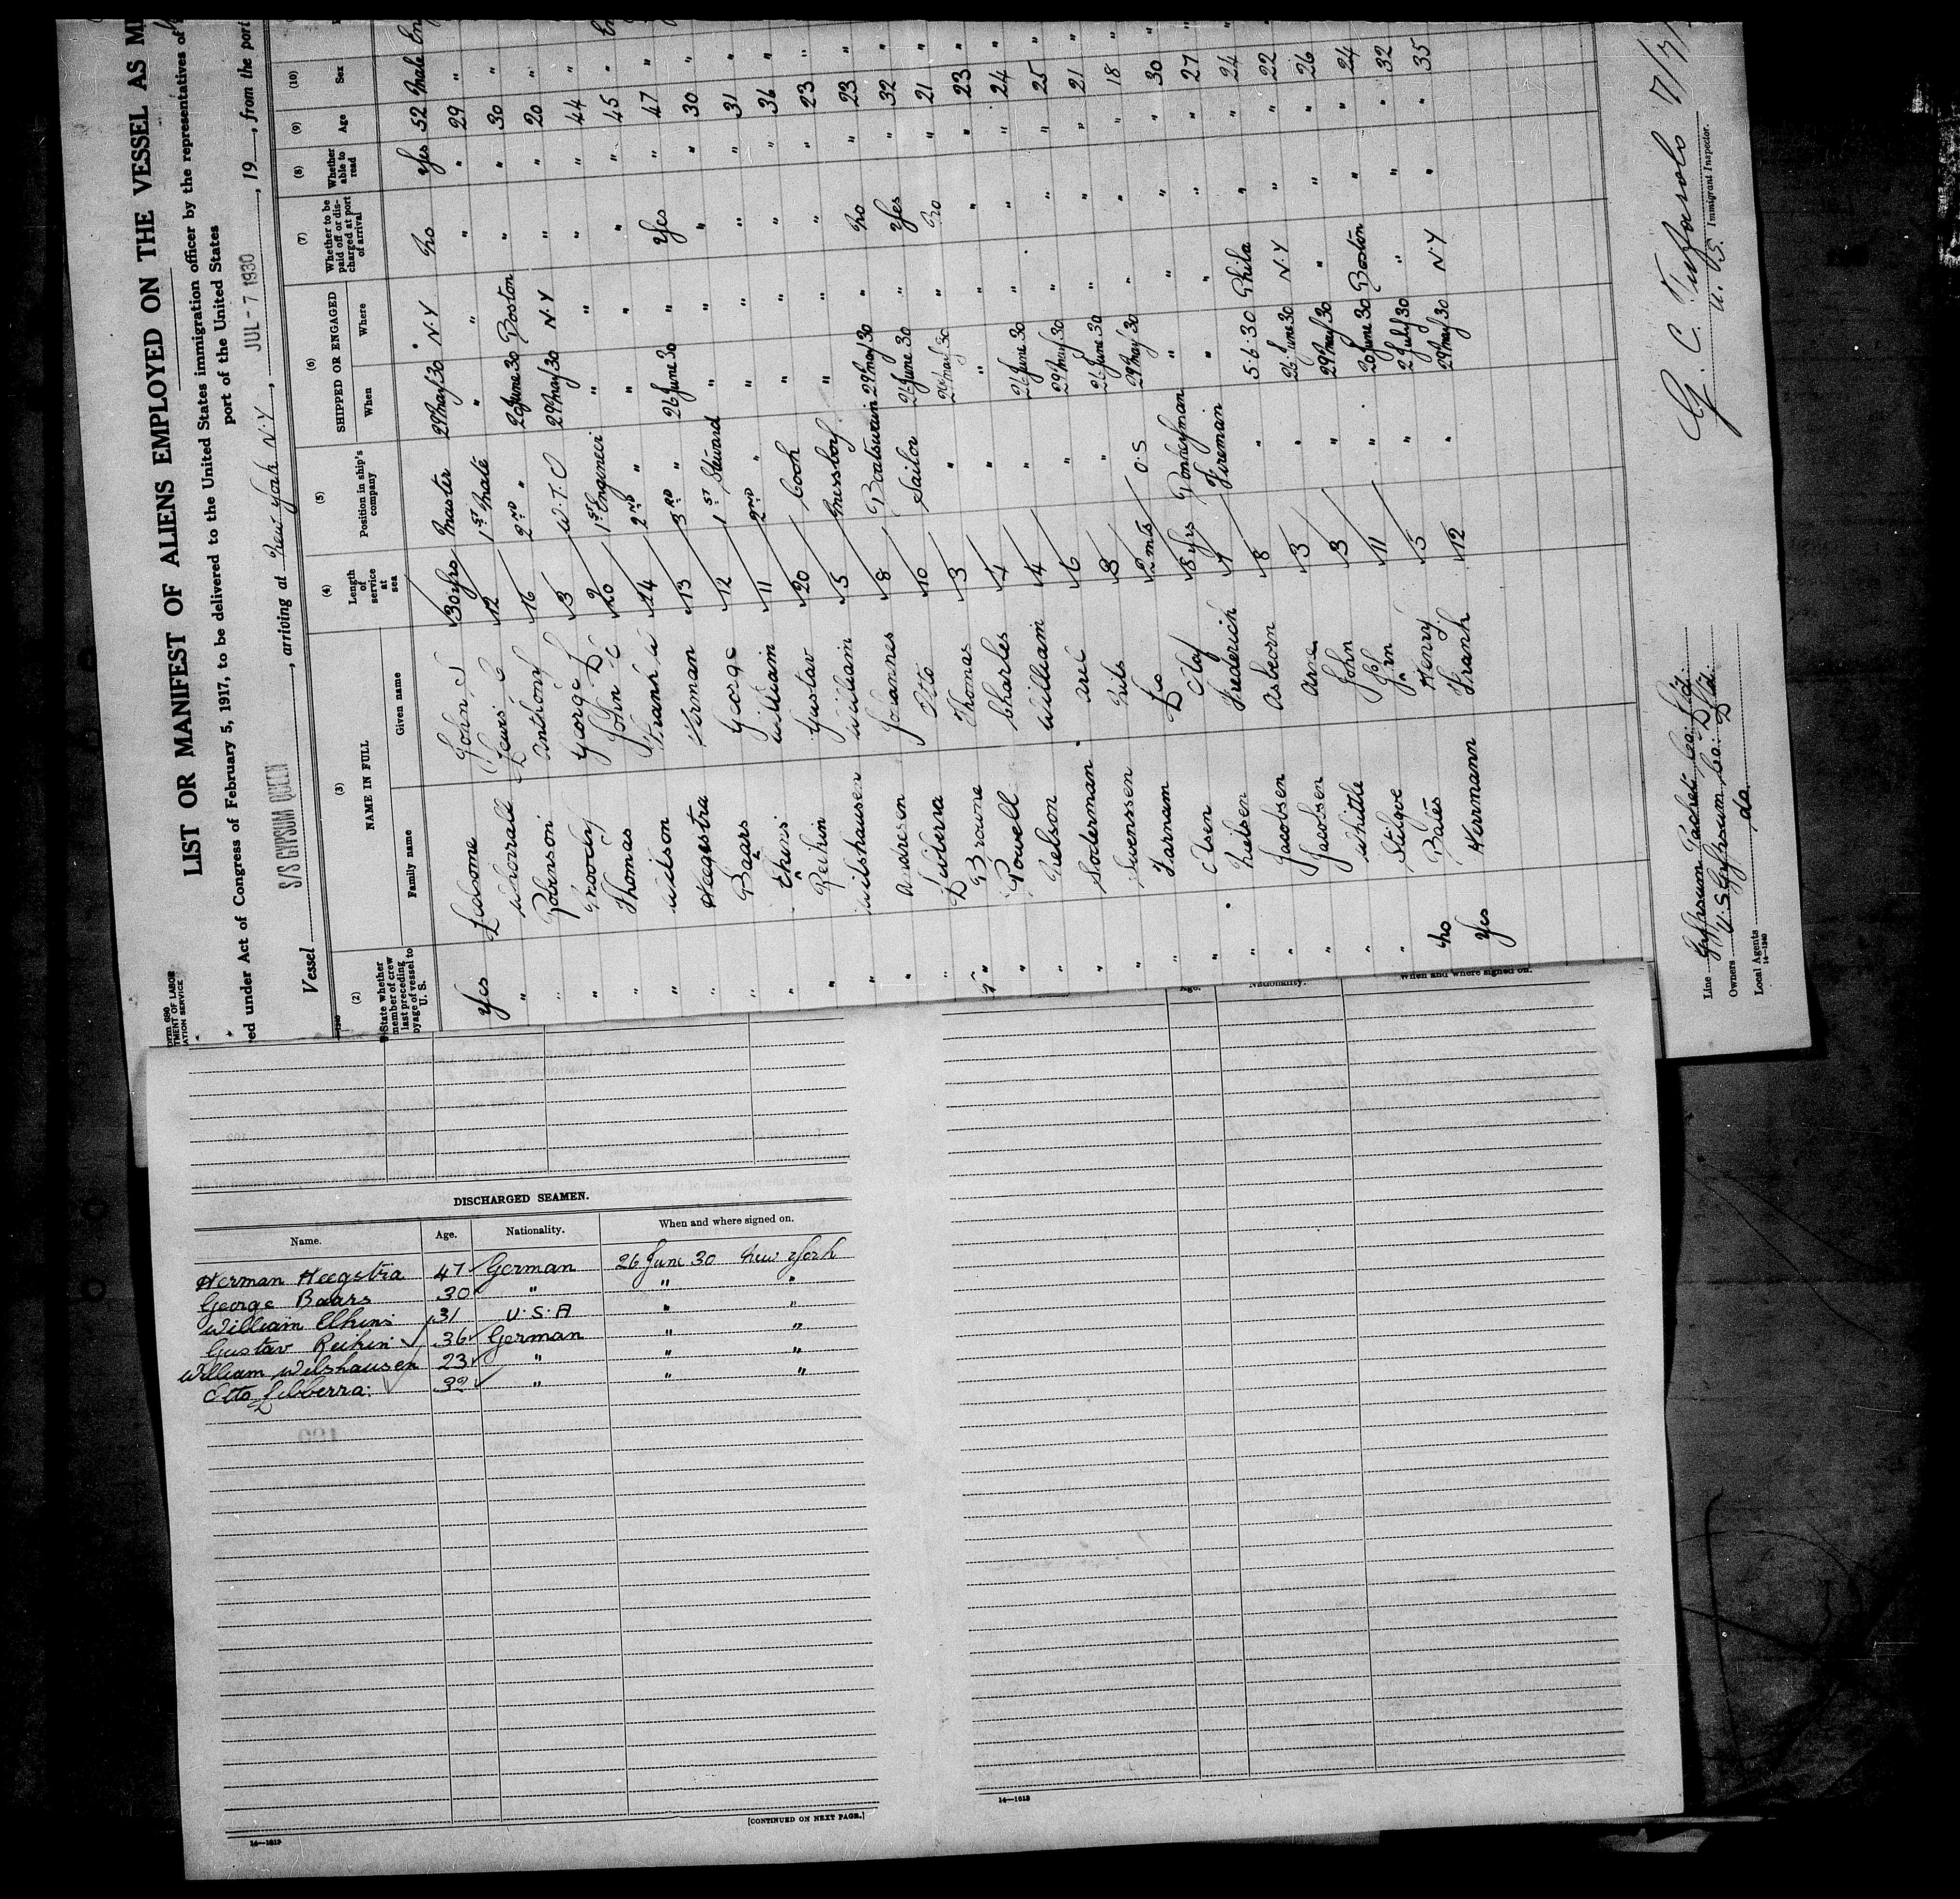 LIST OR MANIFEST OF ALIENS EMPLOYED ON THE VESSEL AS M
ed under Act of Congress of February 5, 1917, to be delivered to the United States immigration officer by the representatives of
port of the United States
Vessel S/S GYPSUM QUEEN, arriving at New York N.Y, JUL - 7 1930, 19, from the port
(2) (3) (4) (5) (6) (7) (8) (9) (10)
State whether member of crew last preceding voyage of vessel to U. S. NAME IN FULL Length of service at sea Position in ship's company SHIPPED OR ENGAGED Whether to be paid off or discharged at port of arrival Whether able to read Age Sex
Family name Given name When Where
Yes Ledsome John S 30 yrs Master 29 May 30 N.Y No Yes 52 Male
" Whorrall Lewis C 12 1ST Mate " " " " 29 "
" Robinson Anthony 16 2ND " 20 June 30 Boston " " 30 "
" Groody George L 3 W.T.O 29 May 30 N.Y " " 20 "
" Thomas John C 20 1ST Engineer " " " " 44 "
" Wilson Frank W 14 2ND " " " " " 45 "
" Heegstra Herman 13 3RD " 26 June 30 " Yes " 47 "
" Baars George 12 1ST Steward " " " " 30 "
" Elkins William 11 2ND " " " " " 31 "
" Reikin Gustav 20 Cook " " " " 36 "
" Wilshausen William 5 Messboy " " " " 23 "
" Andresen Johannes 8 Boatswain 29 May 30 " No " 23 "
" Otto 10 Sailor 26 June 30 " Yes " 32 "
" Browne Thomas 3 " 29 May 30 " No " 21 "
" Powell Charles 4 " " " " " 23 "
" Nelson William 4 " 26 June 30 " " " 24 "
" Soderman Axel 6 " 29 May 30 " " " 25 "
" Swenssen Nils 8 " 26 June 30 " " " 21 "
" Farnam Leo 2 mts O.S 29 May 30 " " " 18 "
" Olsen Olaf 8 yrs Donkeyman " " " " 30 "
" Nielsen Frederich 7 Fireman " " " " 27 "
" Jacobsen Asbeorn 8 " 5.6.30 Phila " " 24 "
" Jacobsen Arne 3 " 26 June 30 N.Y " " 22 "
" Whittle John 3 " 29 May 30 " " " 26 "
" John 11 " 20 June 30 Boston " " 24 "
No Bates Henry 5 " 2 July 30 " " " 32 "
Yes Herrmann Frank 12 " 29 May 30 N.Y " " 35 "
Line Gypsum Packet Co: Ltd:
Owners U.S. Gypsum Co: Ltd:
Local Agents do
14—1240
G. C.
U.S. Immigrant Inspector.
DISCHARGED SEAMEN.
Name. Age. Nationality. When and where signed on.
Herman Heegstra 47 German 26 June 30 New York
George Baars 30 " " "
William Elkins 31 U.S.A " "
Gustav Reikin 36 German " "
William Wilshausen 23 " " "
Otto Libberra 32 " " "
[CONTINUED ON NEXT PAGE.]
14—1013
Age. Nationality. When and where signed on.
14—1013